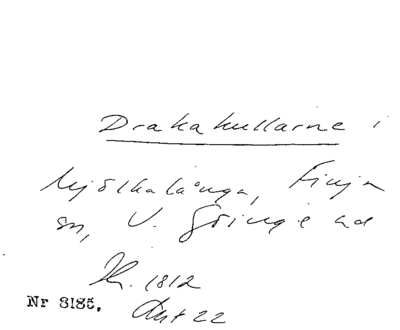 Drakakullarne i
Mjölkalånga, Finja
sn, V. Göinge hd
Kh. 1812
Nr 3185. Ant 22